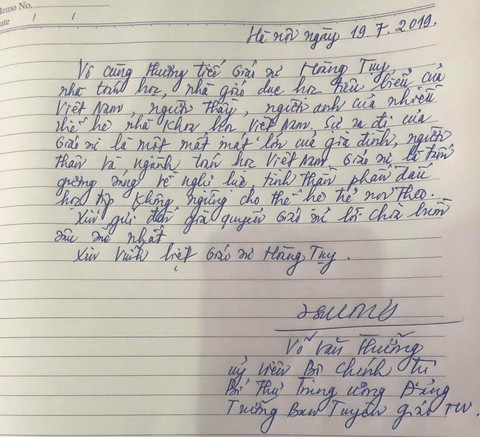 Memo No.
Date / /
Hà nội ngày 19.7.2019.
Vô cùng thương tiếc Giáo sư Hoàng Tụy,
nhà toán học, nhà giáo dục học tiêu biểu của
Việt Nam, người thầy, người anh của nhiều
thế hệ nhà khoa học Việt Nam. Sự ra đi của
Giáo sư là một mất mát lớn của gia đình, người
thân và ngành toán học Việt Nam. Giáo sư là tấm
gương sáng về nghị lực, tinh thần phấn đấu
học tập không ngừng cho thế hệ trẻ noi theo.
Xin gửi đến gia quyến Giáo sư lời chia buồn
sâu sắc nhất
Xin vĩnh biệt Giáo sư Hoàng Tụy.
Võ Văn Thưởng
Uỷ viên Bộ Chính trị
Bí thư Trung ương Đảng
Trưởng Ban Tuyên giáo TW.